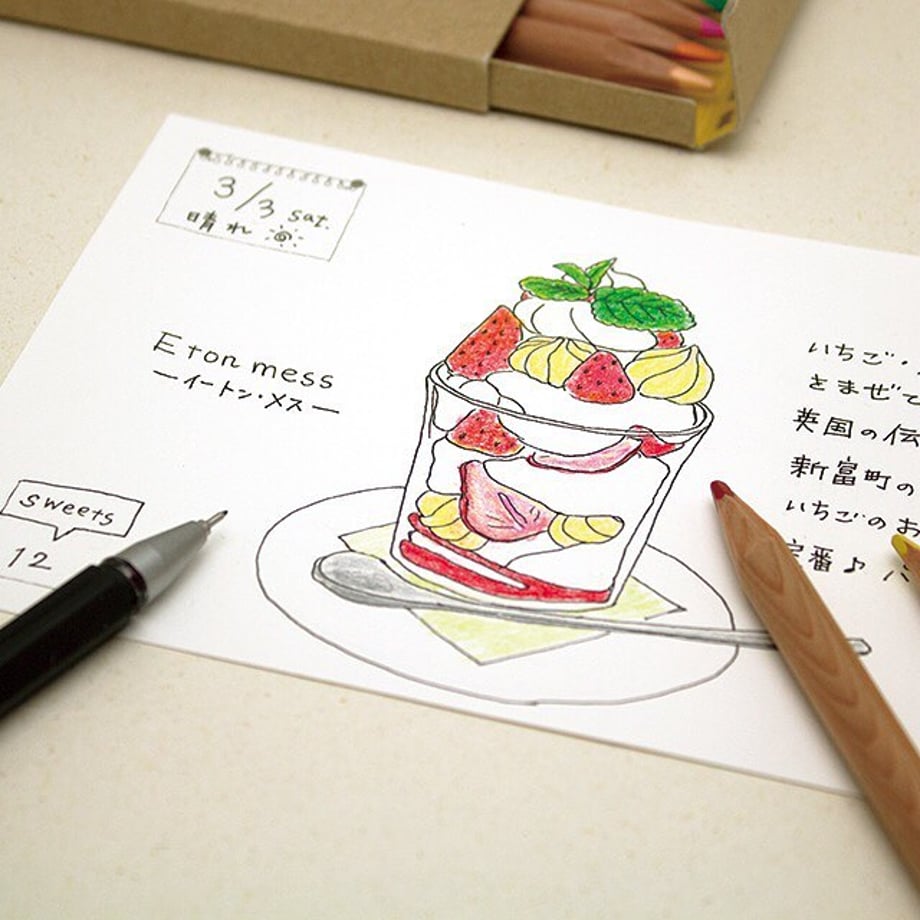 3/3 sat.
晴れ
Eton mess
―イートン・メス―
sweets
12
いちご・
とまぜて
英国の伝
新富町の
いちごのお
定番♪